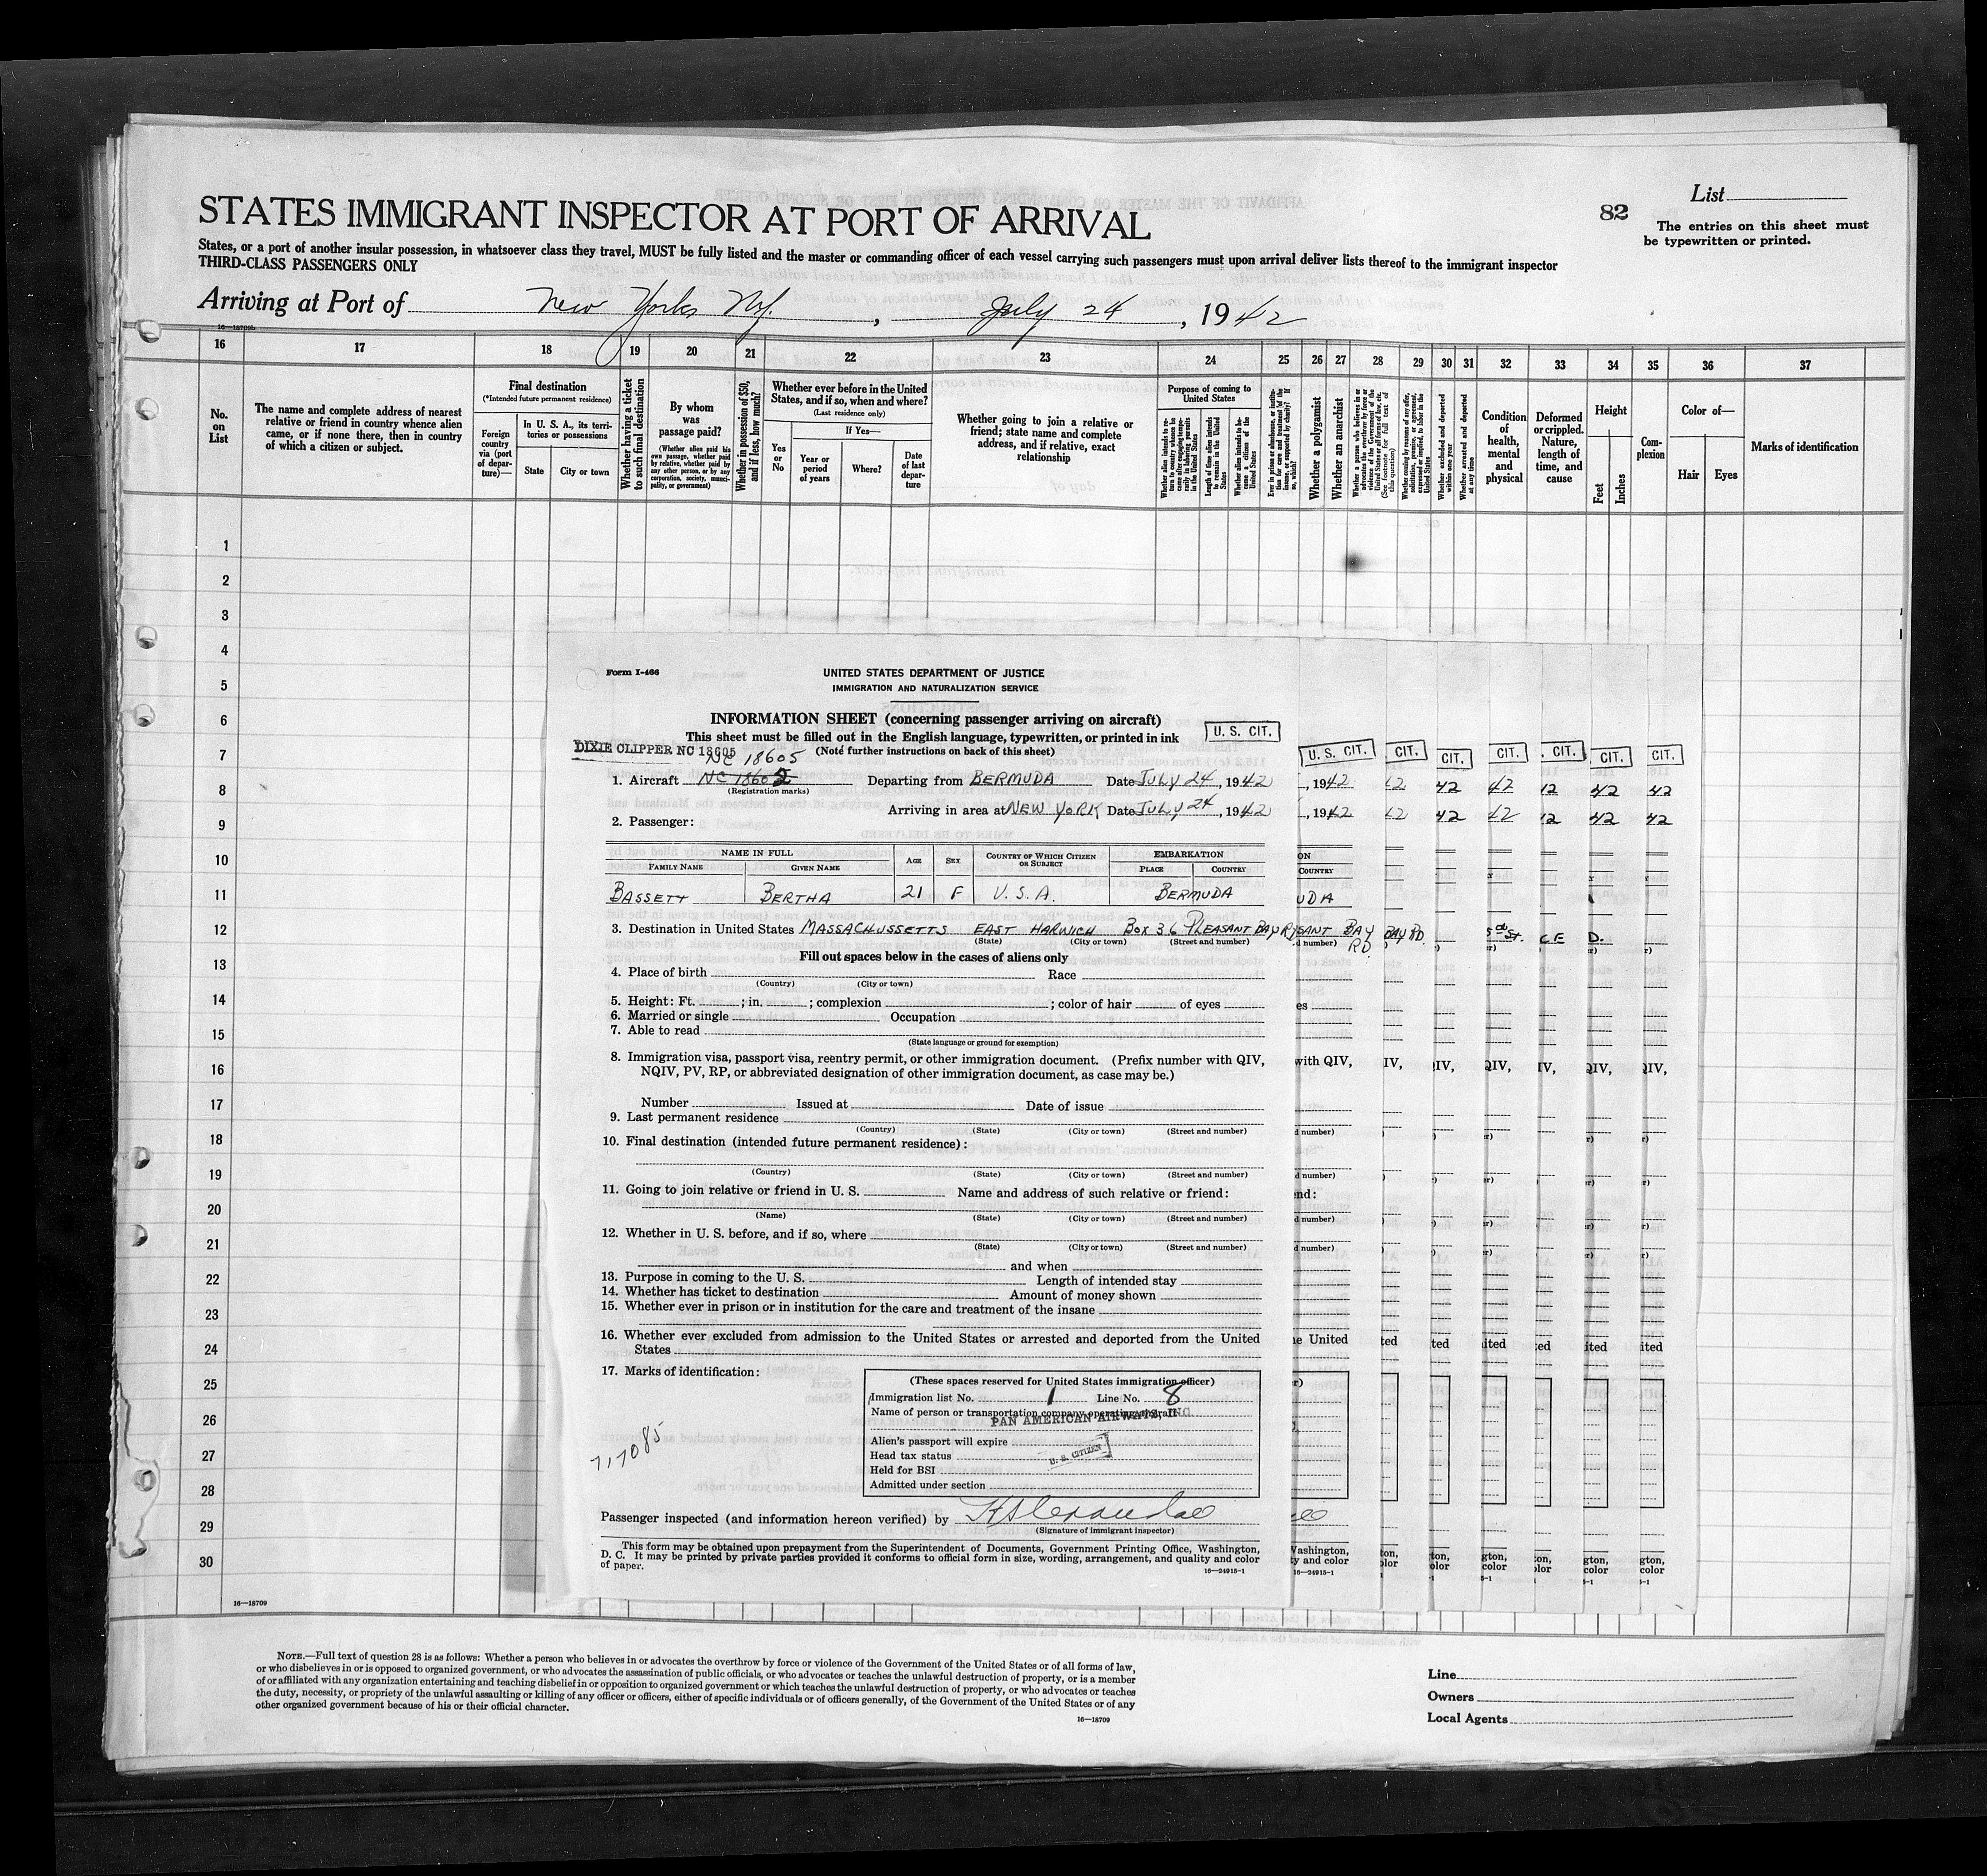 STATES IMMIGRANT INSPECTOR AT PORT OF ARRIVAL
82
List
The entries on this sheet must
be typewritten or printed.
States, or a port of another insular possession, in whatsoever class they travel, MUST be fully listed and the master or commanding officer of each vessel carrying such passengers must upon arrival deliver lists thereof to the immigrant inspector
THIRD-CLASS PASSENGERS ONLY
Arriving at Port of New York NY. , July 24 , 1942
16—18709b
16 17 18 19 20 21 22 23 24 25 26 27 28 29 30 31 32 33 34 35 36 37
No.
on
List
The name and complete address of nearest
relative or friend in country whence alien
came, or if none there, then in country
of which a citizen or subject.
Final destination
(*Intended future permanent residence)
Foreign
country
via (port
of depar-
ture)—
In U. S. A., its terri-
tories or possessions
State
City or town
Whether having a ticket
to such final destination
By whom
was
passage paid?
(Whether alien paid his
own passage, whether paid
by relative, whether paid by
any other person, or by any
corporation, society, munici-
pality, or government)
Whether in possession of $50,
and if less, how much?
Whether ever before in the United
States, and if so, when and where?
(Last residence only)
Yes
or
No
If Yes—
Year or
period
of years
Where?
Date
of last
depar-
ture
Whether going to join a relative or
friend; state name and complete
address, and if relative, exact
relationship
Purpose of coming to
United States
Length of time alien intends
to remain in the United
States
Whether a polygamist
Whether an anarchist
Whether excluded and deported
within one year
Whether arrested and deported
at any time
Condition
of
health,
mental
and
physical
Deformed
or crippled.
Nature,
length of
time, and
cause
Height
Feet
Inches
Com-
plexion
Color of—
Hair
Eyes
Marks of identification
1
2
3
4
5
6
7
8
9
10
11
12
13
14
15
16
17
18
19
20
21
22
23
24
25
26
27
28
29
30
16—18709
Form I-466
UNITED STATES DEPARTMENT OF JUSTICE
IMMIGRATION AND NATURALIZATION SERVICE
INFORMATION SHEET (concerning passenger arriving on aircraft)
This sheet must be filled out in the English language, typewritten, or printed in ink
(Note further instructions on back of this sheet)
U. S. CIT.
U. S. CIT. CIT. CIT. CIT. . CIT. CIT. CIT.
DIXIE CLIPPER NC 18605
NC 18605
1. Aircraft NC 18602 Departing from BERMUDA Date JULY 24, 1942
(Registration marks)
Arriving in area at NEW YORK Date JULY 24, 1942
2. Passenger:
NAME IN FULL
FAMILY NAME
GIVEN NAME
AGE
SEX
COUNTRY OF WHICH CITIZEN
OR SUBJECT
EMBARKATION
PLACE
COUNTRY
BASSETT BERTHA 21 F U.S.A. BERMUDA
3. Destination in United States MASSACHUSSETTS EAST HARWICH BOX 36 PLEASANT BAY R
(State) (City or town) (Street and number)
Fill out spaces below in the cases of aliens only
4. Place of birth Race
(Country) (City or town)
5. Height: Ft. ; in. ; complexion ; color of hair of eyes
6. Married or single Occupation
7. Able to read
(State language or ground for exemption)
8. Immigration visa, passport visa, reentry permit, or other immigration document. (Prefix number with QIV,
NQIV, PV, RP, or abbreviated designation of other immigration document, as case may be.)
Number Issued at Date of issue
9. Last permanent residence
(Country) (State) (City or town) (Street and number)
10. Final destination (intended future permanent residence):
(Country) (State) (City or town) (Street and number)
11. Going to join relative or friend in U. S. Name and address of such relative or friend:
(Name) (State) (City or town) (Street and number)
12. Whether in U. S. before, and if so, where
(State) (City or town) (Street and number)
and when
13. Purpose in coming to the U. S. Length of intended stay
14. Whether has ticket to destination Amount of money shown
15. Whether ever in prison or in institution for the care and treatment of the insane
16. Whether ever excluded from admission to the United States or arrested and deported from the United
States
17. Marks of identification:
(These spaces reserved for United States immigration officer)
Immigration list No. 1 Line No. 8
Name of person or transportation company operating aircraft
PAN AMERICAN AIRWAYS, IND
Alien's passport will expire
U. S. CITIZEN
Head tax status
Held for BSI
Admitted under section
717085
Passenger inspected (and information hereon verified) by
(Signature of immigrant inspector)
This form may be obtained upon prepayment from the Superintendent of Documents, Government Printing Office, Washington,
D. C. It may be printed by private parties provided it conforms to official form in size, wording, arrangement, and quality and color
of paper.
16—24915-1
NOTE.—Full text of question 28 is as follows: Whether a person who believes in or advocates the overthrow by force or violence of the Government of the United States or of all forms of law,
or who disbelieves in or is opposed to organized government, or who advocates the assassination of public officials, or who advocates or teaches the unlawful destruction of property, or is a member
of or affiliated with any organization entertaining and teaching disbelief in or opposition to organized government or which teaches the unlawful destruction of property, or who advocates or teaches
the duty, necessity, or propriety of the unlawful assaulting or killing of any officer or officers, either of specific individuals or of officers generally, of the Government of the United States or of any
other organized government because of his or their official character.
16—18709
Line
Owners
Local Agents